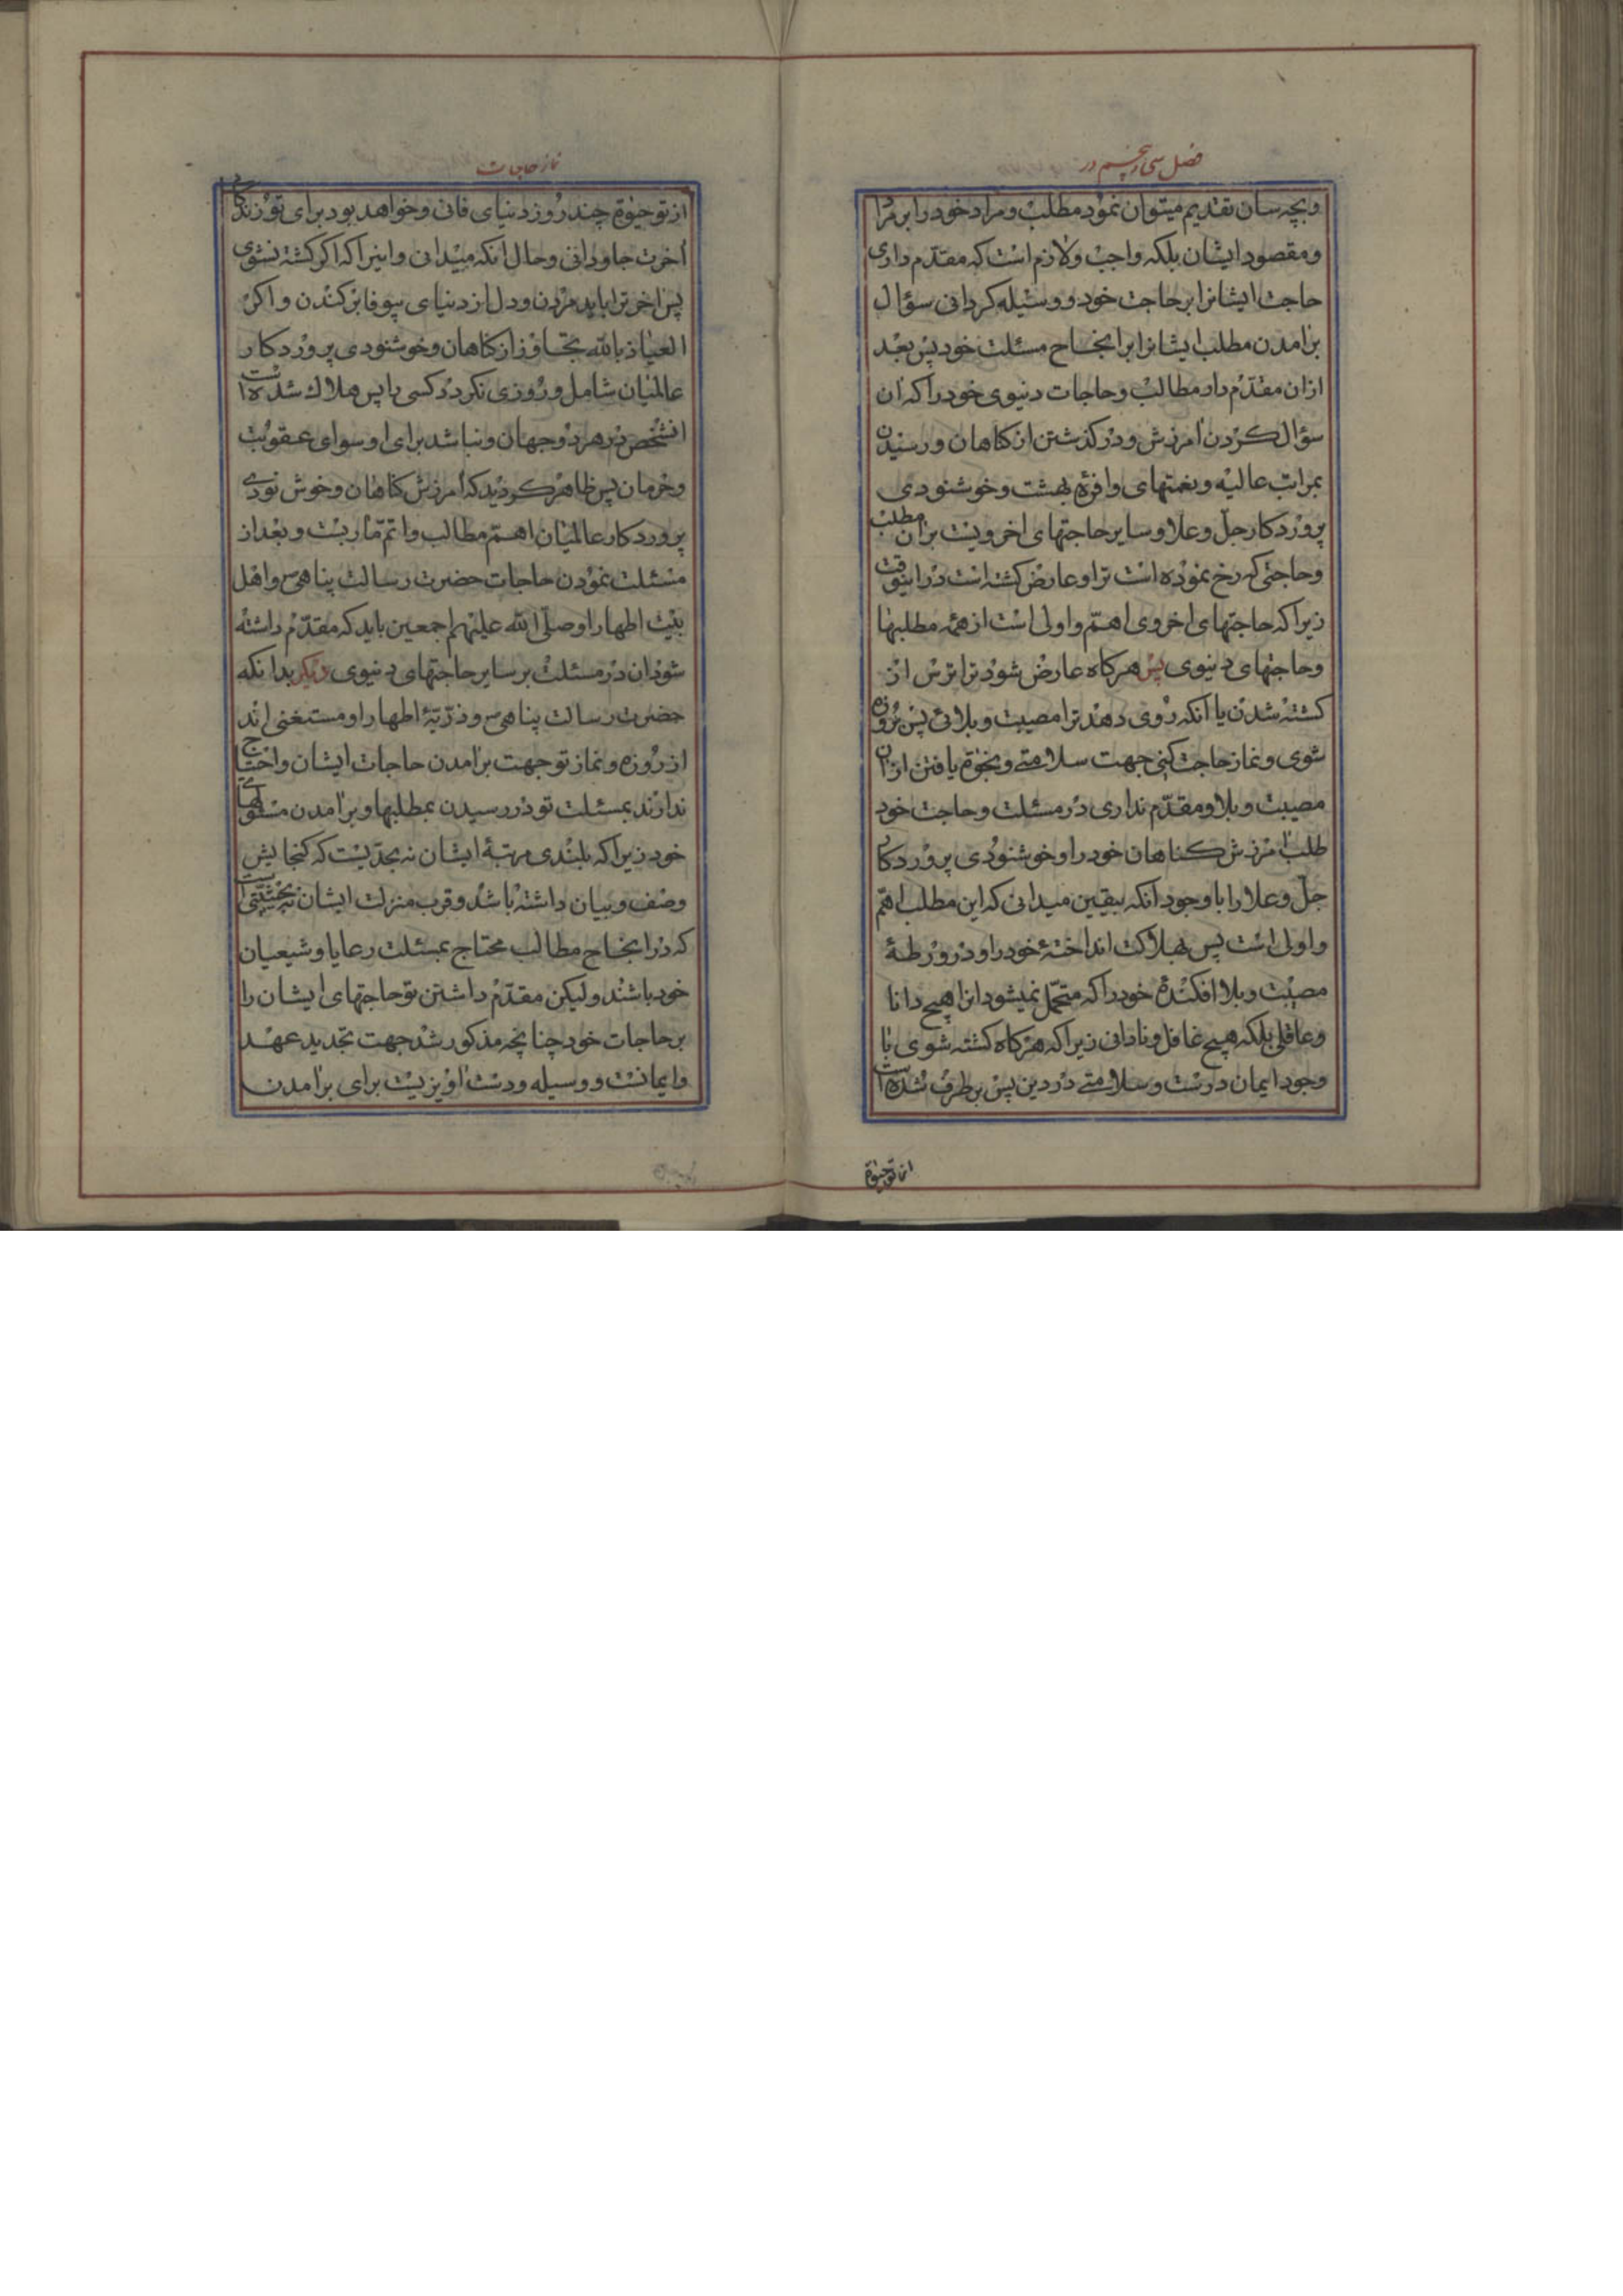 فصل سی و پنجم در
وبچه سان تقدیم میتوان نمود مطلب و مراد خود را بر مراد
و مقصود ایشان بلکه واجب و لازم است که مقدّم داری
حاجت ایشانرا بر حاجت خود و وسیله کردانی سؤال
برامدن مطلب ایشانرا بر انجاح مسئلت خود پس بعد
ازان مقدّم دار مطالب و حاجات دنیوی خود را که ان
سؤال کردن امرزش و درکذشتن از کناهان و رسیدن
بمراتب عالیه و نعمتهای وافرهٔ بهشت و خوشنودی
پروردکار جلّ وعلا و سایر حاجتهای اخرویست بران مطلب
و حاجتی که رخ نموده است ترا و عارض کشته است در اینوقت
زیرا که حاجتهای اخروی اهمّ و اولی است از همه مطلبها
و حاجتهای دنیوی پس هرکاه عارض شود ترا ترس از
کشته شدن یا انکه روی دهد ترا مصیبت و بلائی پس بروزه
شوی و نماز حاجت کنی جهت سلامتے و نجوة یافتن ازان
مصیبت و بلا و مقدّم نداری در مسئلت و حاجت خود
طلب امرزش کناهان خود را و خوشنودی پروردکار
جلّ وعلا را با وجود انکه بیقین میدانی که این مطلب اهمّ
و اولی است پس بهلاکت انداختهٔ خود را و در ورطهٔ
مصیبت و بلا افکندهٔ خود را که متحمّل نمیشود انرا هیچ دانا
و عاقلی بلکه هیچ غافل و نادانی زیرا که هرکاه کشته شوی با
وجود ایمان درست و سلامتے در دین پس برطرف شده است
از تو حیوة
نماز حاجات
از تو حیوة چند روز دنیای فانی و خواهد بود برای تو زندکانی
اخرت جاودانی و حال انکه میدانی و اینرا که اکر کشته نشوی
پس اخر ترا باید مردن و دل از دنیای بیوفا بر کندن و اکر
العیاذ بالله تجاوز از کناهان و خوشنودی پروردکار
عالمیان شامل و روزی نکردد کسی را پس هلاك شده است
انشخص در هر دو جهان و نباشد برای او سوای عقوبت
و حرمان پس ظاهر کردید که امرزش کناهان و خوش نودی
پروردکار عالمیان اهمّ مطالب و اتمّ ماربست و بعد از
مسئلت نمودن حاجات حضرت رسالت پناهی ص و اهل
بیت اطهار او صلّی الله علیهم اجمعین باید که مقدّم داشته
شود ان در مسئلت بر سایر حاجتهای دنیوی دیکر بدانکه
حضرت رسالت پناهی ص و ذرّیّهٔ اطهار او مستغنی اند
از روزه و نماز تو جهت برامدن حاجات ایشان و احتیاج
ندارند بمسئلت تو در رسیدن بمطلبها و برامدن مسئولهای
خود زیرا که بلندی مرتبهٔ ایشان نه بحدّیست که کنجایش
وصف و بیان داشته باشد و قرب منزلت ایشان نه بحیثیّتی است
که در انجاح مطالب محتاج بمسئلت رعایا و شیعیان
خود باشند و لیکن مقدّم داشتن تو حاجتهای ایشان را
بر حاجات خود چنانچه مذکور شد جهت تجدید عهد
و ایمانست و وسیله و دست اویزیست برای برامدن